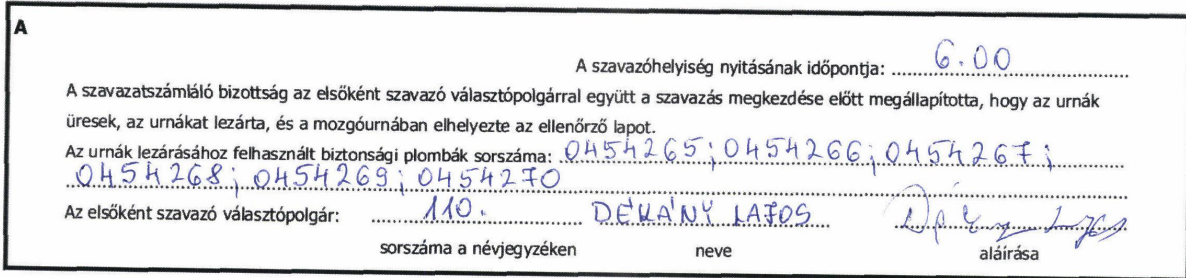 A
A szavazóhelyiség nyitásának időpontja: 6.00
A szavazatszámláló bizottság az elsőként szavazó választópolgárral együtt a szavazás megkezdése előtt megállapította, hogy az urnák
üresek, az urnákat lezárta, és a mozgóurnában elhelyezte az ellenőrző lapot.
Az urnák lezárásához felhasznált biztonsági plombák sorszáma: 0454265; 0454266; 0454267;
0454268; 0454269; 0454270
Az elsőként szavazó választópolgár: 110. DÉKÁNY LAJOS
sorszáma a névjegyzéken neve aláírása